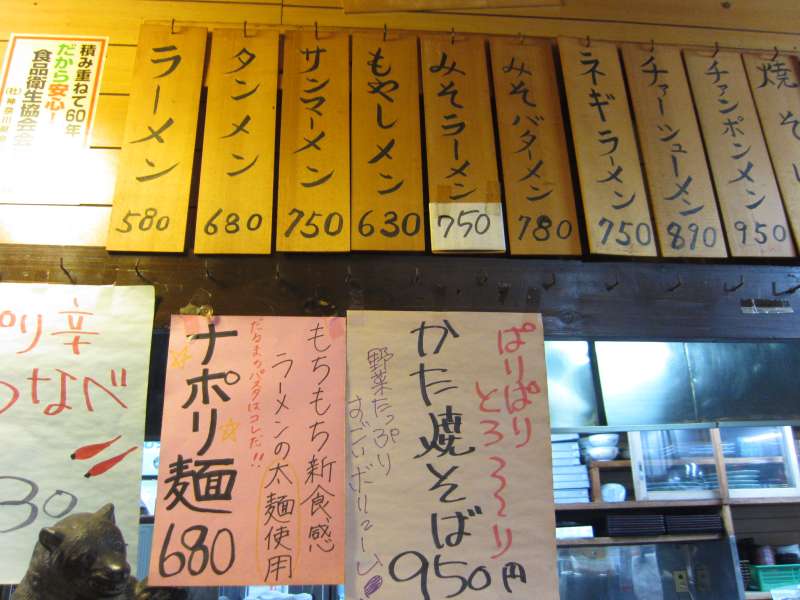 積み重ねて60年
だから安心!
食品衛生協会会
ラーメン
580
タンメン
680
サンマーメン
750
もやしメン
630
みそラーメン
750
みそバターメン
780
ネギラーメン
750
チャーシューメン
890
チャンポンメン
950
焼そ
ぱりぱり
とろ〜〜り
かた焼そば
950円
野菜たっぷり
すごいボリューム
もちもち新食感
ラーメンの太麺使用
だるまのパスタはコレだ!!
ナポリ麺
680
ぴり辛
なべ
30